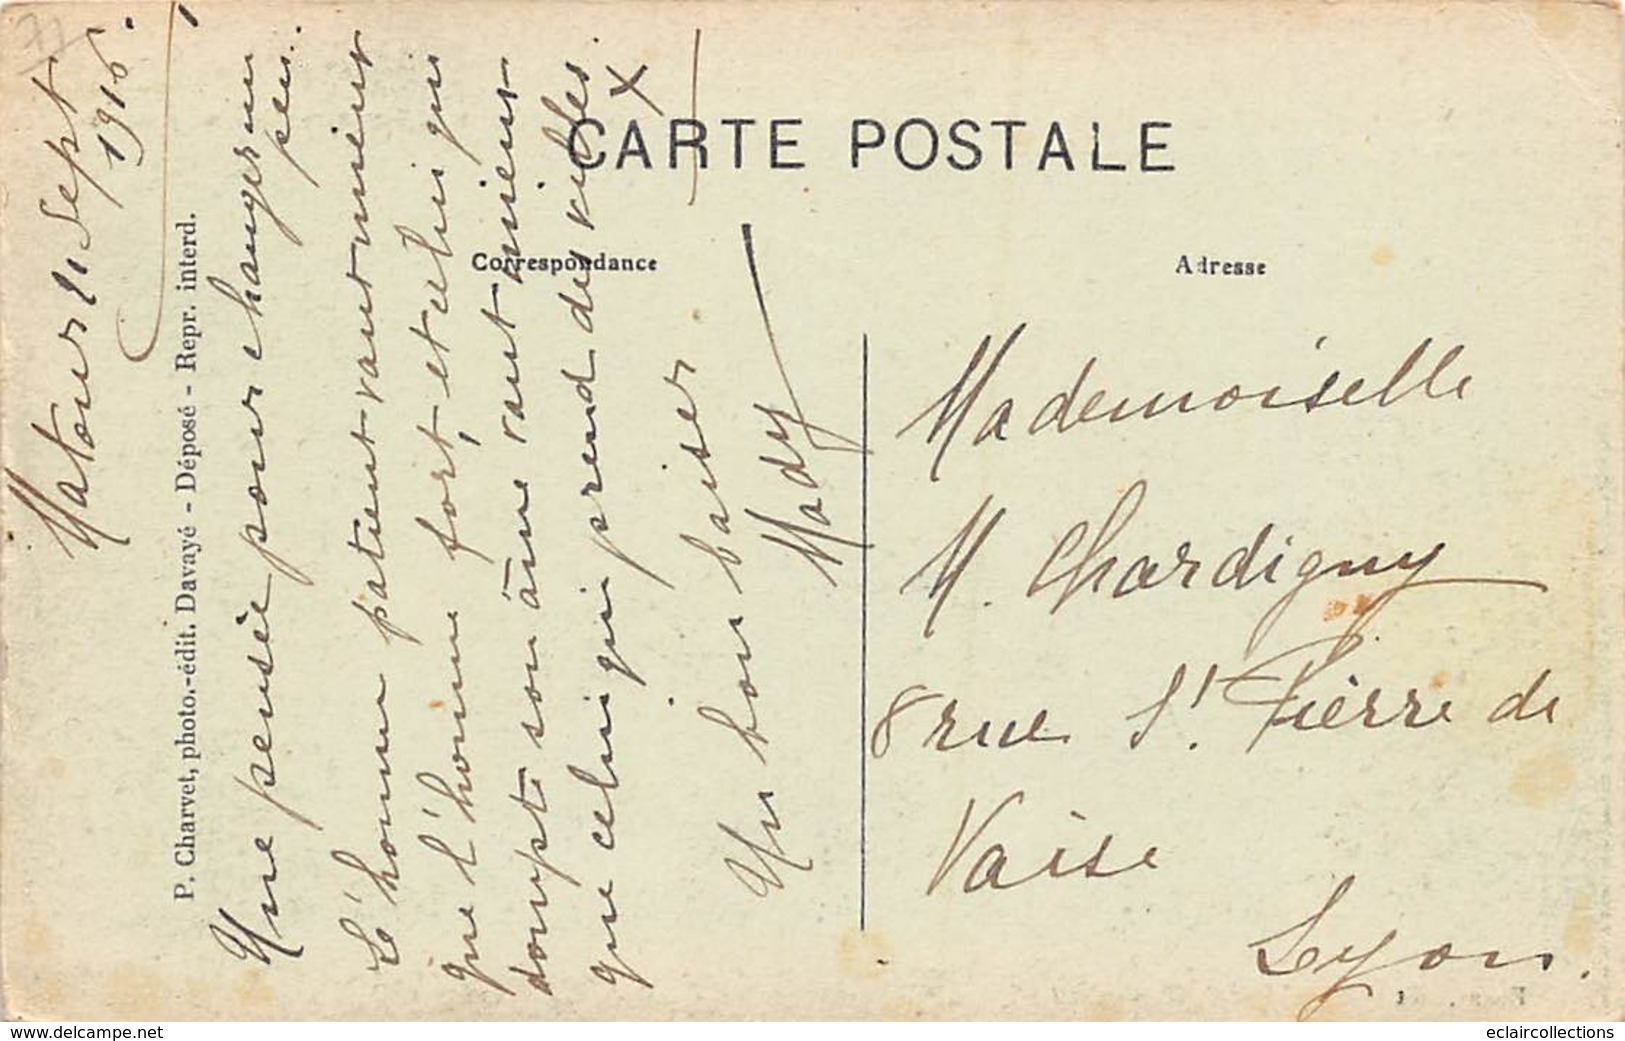 Matour 21 Sept
1916.
P. Charvet, photo.-édit. Davayé - Déposé - Repr. interd.
Une pensée pour changer un
peu..
L'homme patient vaut mieux
que l'homme fort, et celui qui
dompte son âme vaut mieux
que celui qui prend des villes.
X
Un bon baiser
Mady
CARTE POSTALE
Correspondance
Adresse
Mademoiselle
M. Chardigny
8 rue St. Pierre de
Vaise
Lyon.
www.delcampe.net
eclaircollections